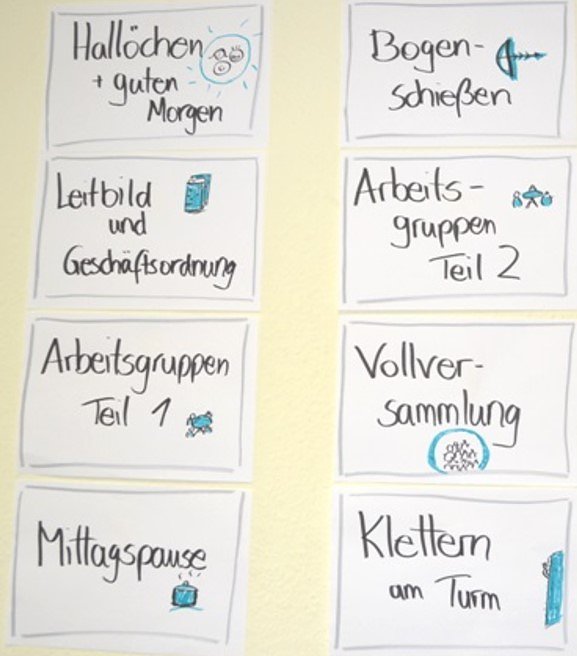 Hallöchen
+ guten
Morgen
Leitbild
und
Geschäftsordnung
Arbeitsgruppen
Teil 1
Mittagspause
Bogen-
schießen
Arbeits-
gruppen
Teil 2
Vollver-
sammlung
Klettern
am Turm